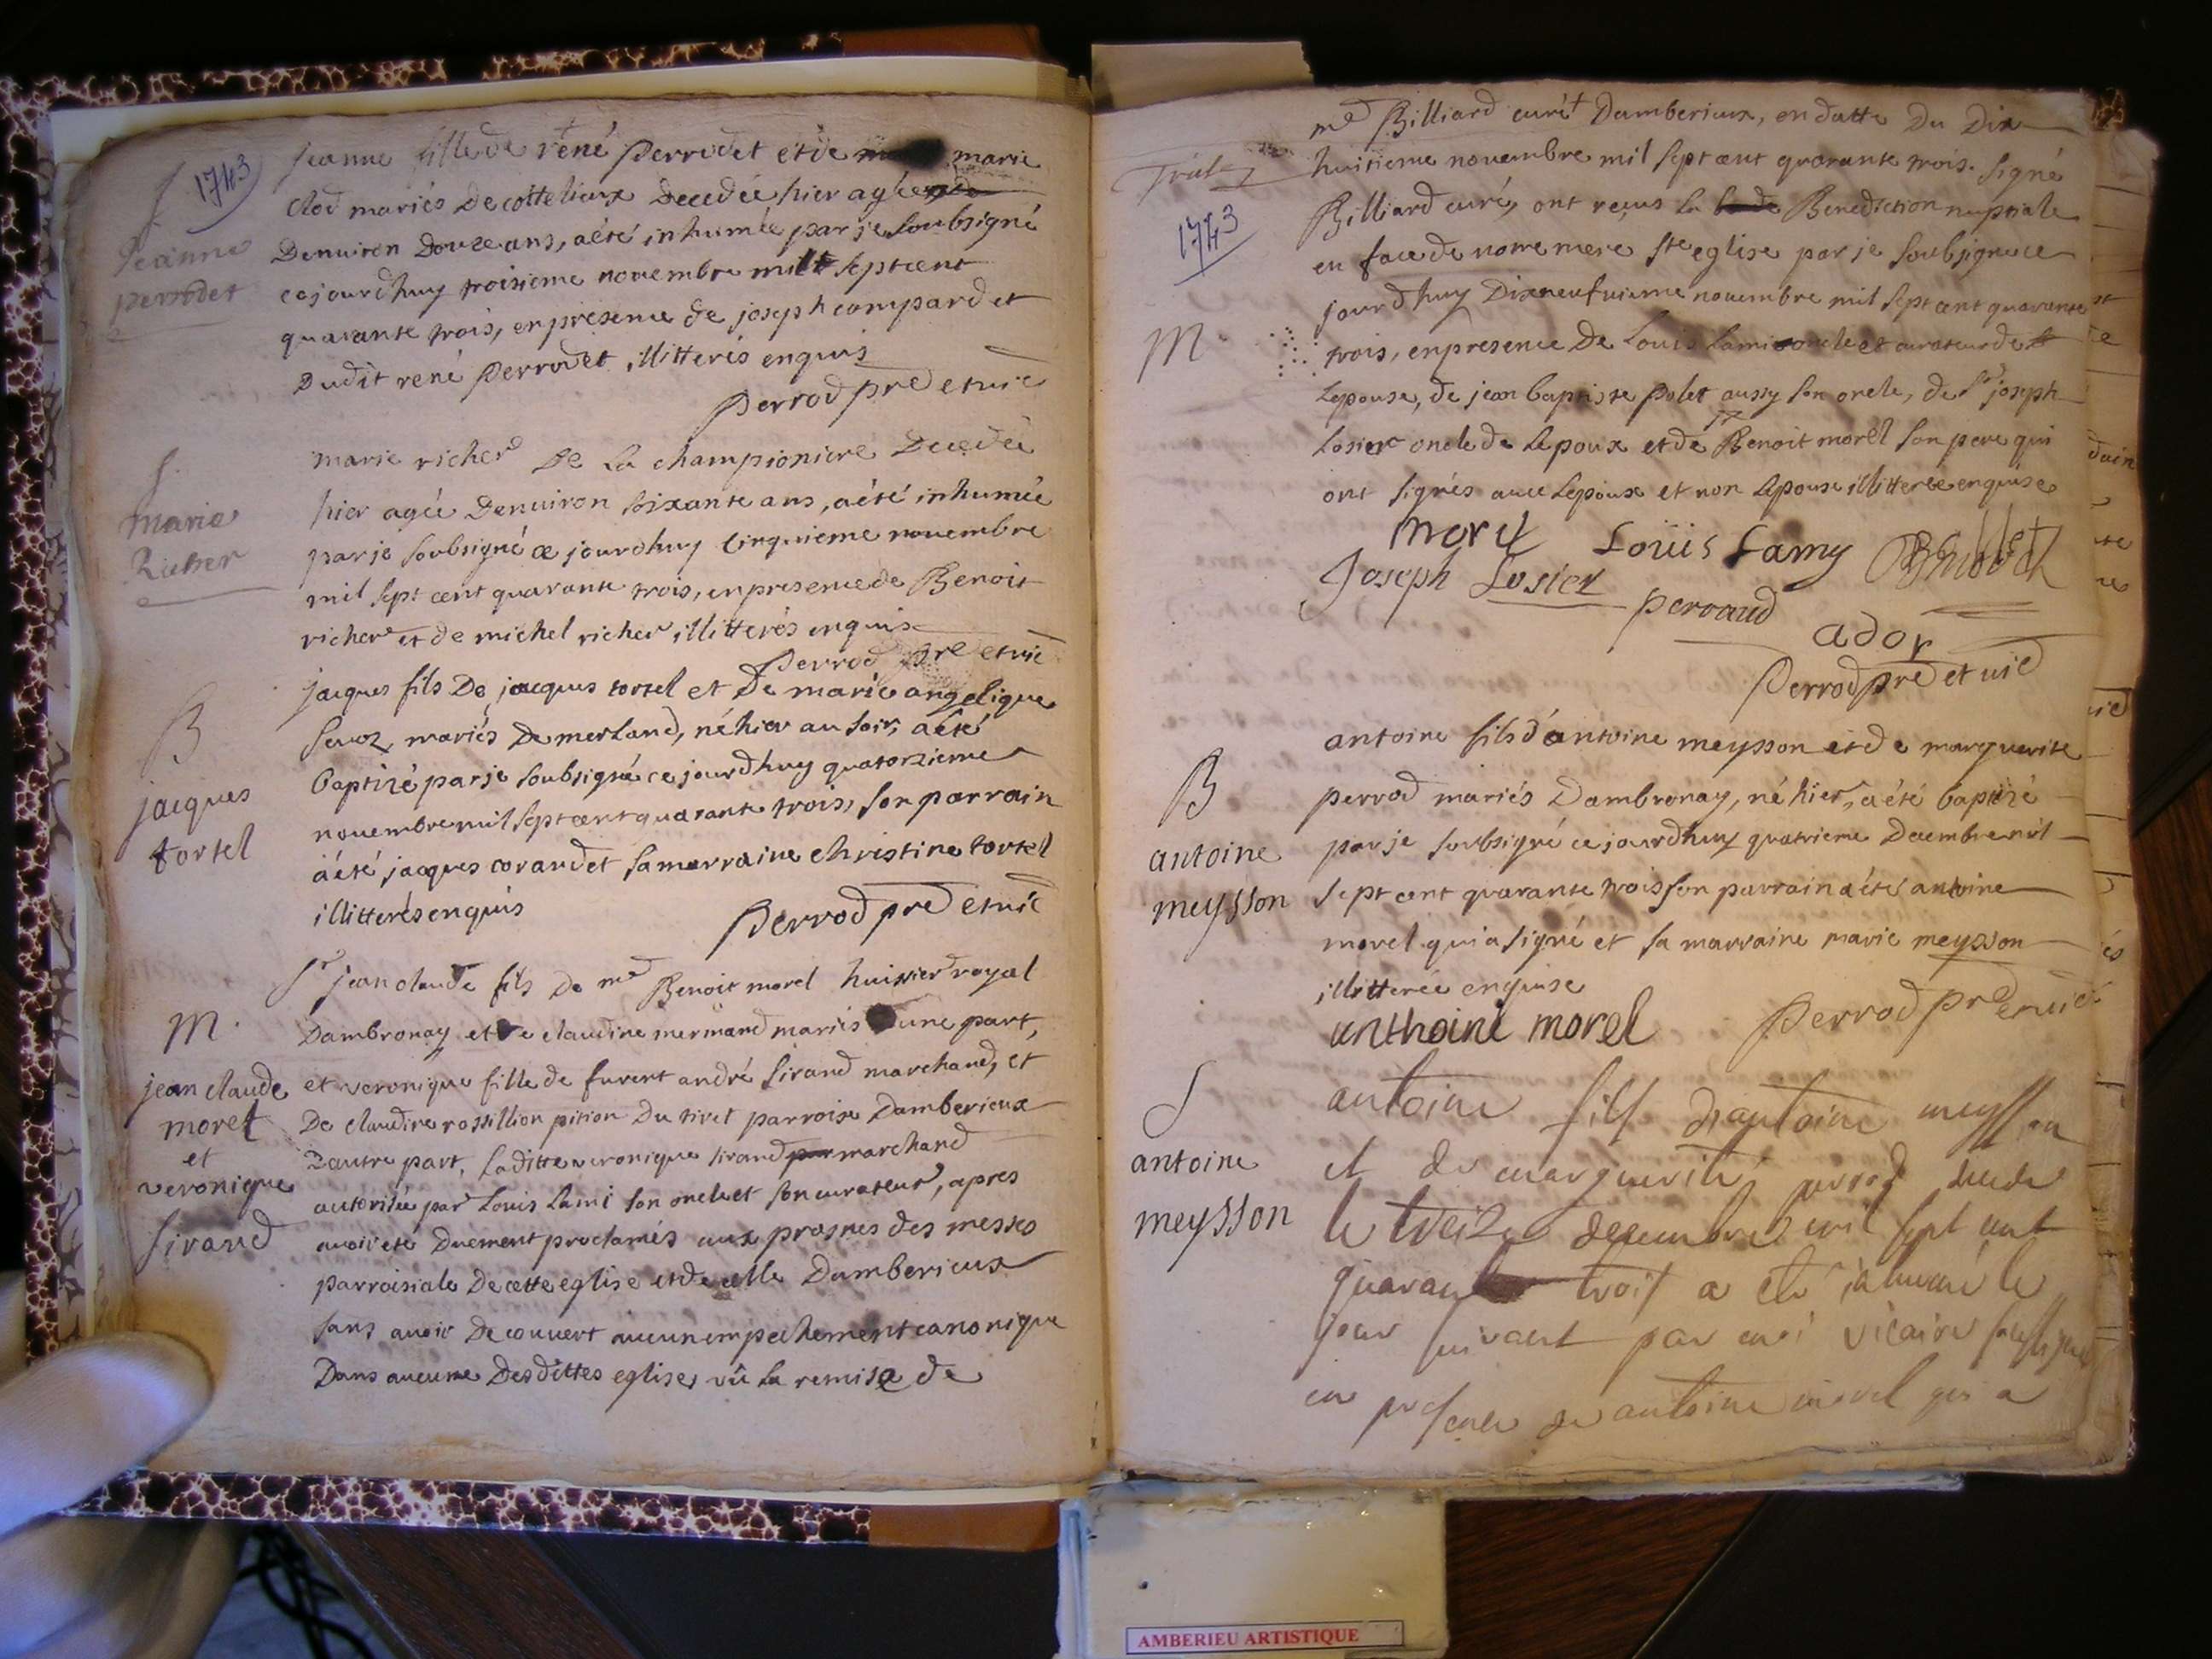 1743
S
Jeanne
perrodet
Jeanne fille de rené perrodet et de marie
clod mariés de cotteliaux decedée hier agée
denuiron douze ans, a été inhumée par je soubsigné
cejourdhuy troisieme nouembre mil sept cent
quarante trois, en présence de joseph compard et
dudit rené perrodet illitterés enquis
perrod pre et vic
S
marie
Richer
marie richer de la championiere decedée
hier agée denuiron soixante ans, a été inhumée
par je soubsigné ce jourdhuy cinquieme nouembre
mil sept cent quarante trois, en presence de Benoit
richer et de michel richer illitterés enquis
perrod pre et vic
B
jacques
tortel
jacques fils de jacques tortel et de marie angelique
mariés demerland, né hier au soir, a été
baptizé par je soubsigné ce jourdhuy quatorzieme
nouembre mil sept cent quarante trois, son parrain
a été jacques corand et sa marraine christine tortel
illitterés enquis
perrod pre et vic
M.
jean claude
morel
et
veronique
sirand
Sr jean claude fils de me Benoit morel huissier royal
dambronay et de claudine mermand mariés dune part,
et veronique fille de furent andré sirand marchand, et
de claudine rossillion pition du tiret parroisse damberieux
dautre part, laditte veronique sirand marchand
autorisée par Louis Lami son oncle et son curateur, apres
auoir été duement proclamés aux prosnes des messes
parroisiale de cette eglise et de celle damberieux
sans auoir decouuert aucun empechement canonique
dans aucune desdittes eglises vû la remise de
1743
M.
me Billiard curé damberieux, en datte du dix
huitieme nouembre mil sept cent quarante trois. signé
Billiard curé, ont reçus la Benediction nuptiale
en face de notre mere ste eglise par je soubsigné ce
jourdhuy dixneufuieme nouembre mil sept cent quarante
trois, en presence de Louis Lami oncle et curateur de
Lepouse, de jean baptiste polet aussy son oncle, de Sr joseph
Losier oncle de Lepoux et de Benoit morel son pere qui
ont signés auec Lepoux et non Lepouse illitterée enquise
morel Loüis Lamy
Joseph Losier perraud
ador
perrod pre et vic
B
antoine
meysson
antoine fils dantoine meysson et de marguerite
perrod mariés dambronay, né hier, a été baptizé
par je soubsigné ce jourdhuy quatrieme decembre mil
sept cent quarante trois son parrain a été antoine
morel qui a signé et sa marraine marie meysson
illitterée enquise
anthoine morel perrod pre et vic
S
antoine
meysson
antoine fils d'antoine meysson
et de marguerite perrod decede
le treize decembre mil sept cent
quarante trois a eté inhumé le
jour suivant par moi vicaire soussigné
en presence de antoine morel qui a
AMBERIEU ARTISTIQUE